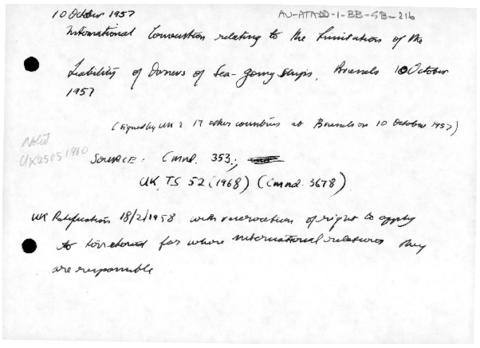 10 October 1957
AU-ATADD-1-BB-GB-216
International Convention relating to the Limitation of the
Liability of Owners of Sea-going Ships, Brussels 10 October
1957
(signed by UK & 17 other countries at Brussels on 10 October 1957)
Noted
SOURCE: Cmnd. 353;
UK TS 52 (1968) (Cmnd. 3678)
UK Ratification 18/2/1958 with reservation of right to apply
to for whose international relations they
are responsible